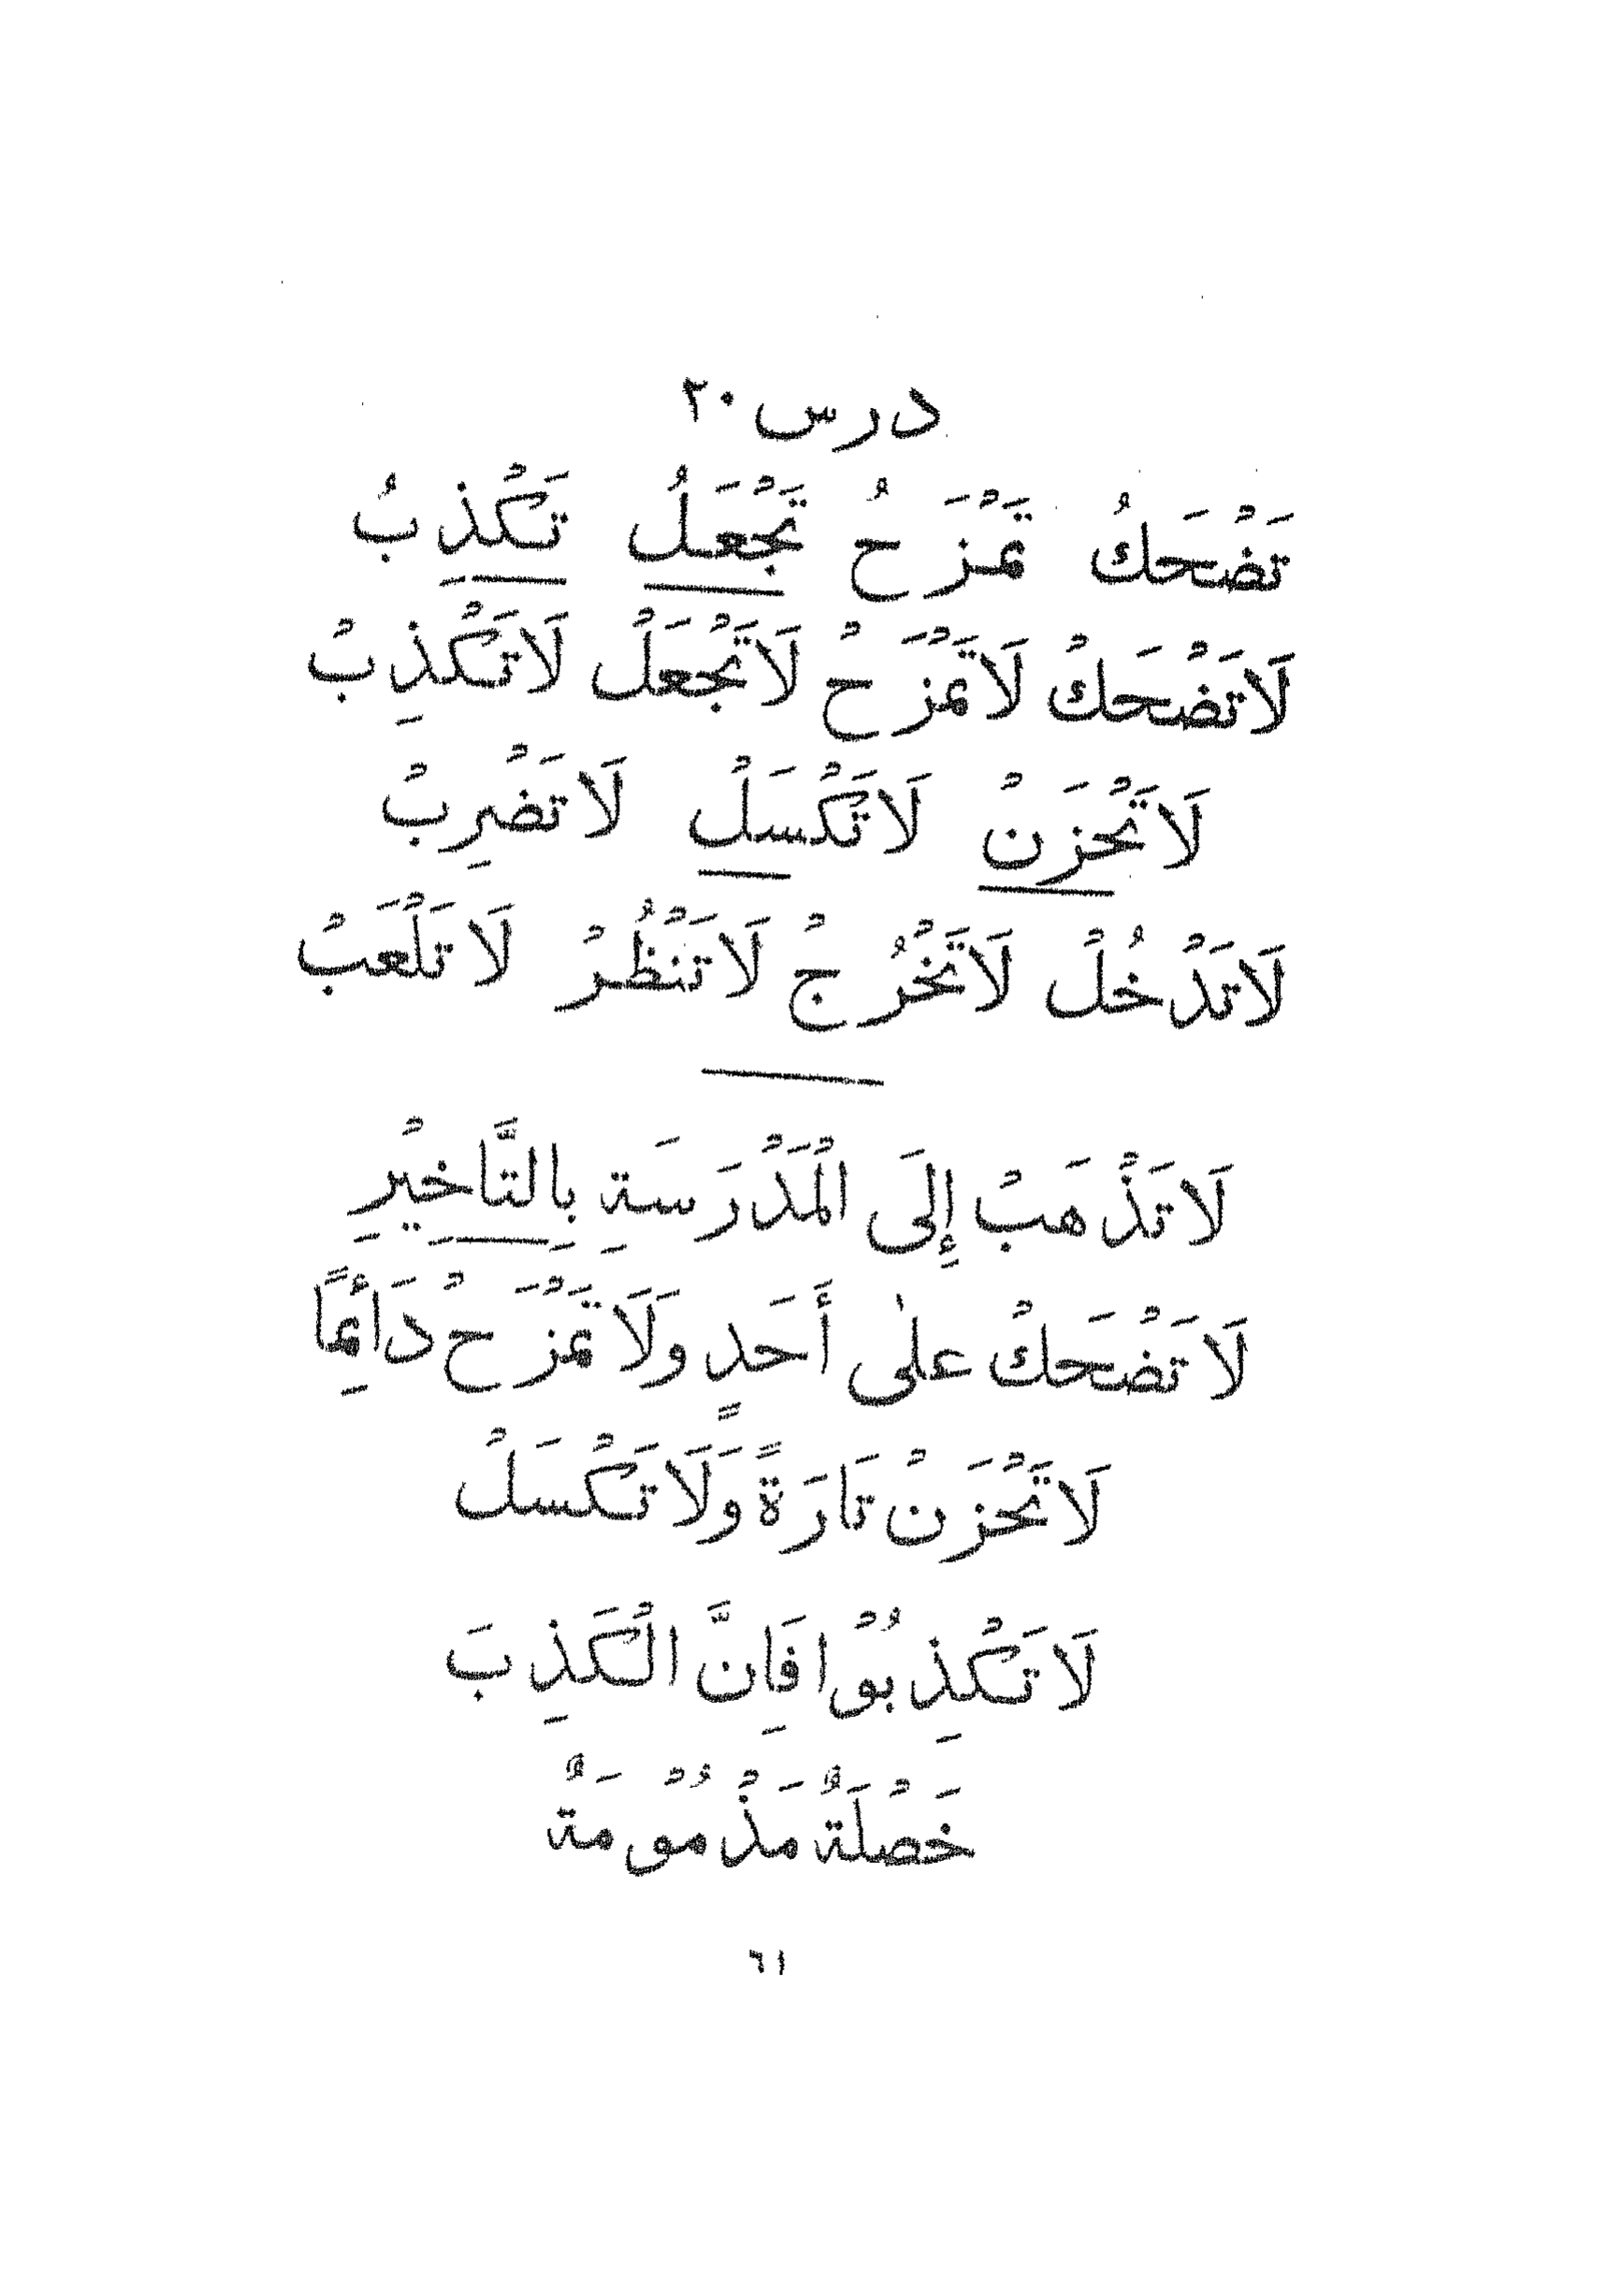 درس ٢٠
تَضْحَكُ تَمْزَحُ تَجْعَلُ تَكْذِبُ
لَاتَضْحَكْ لَاتَمْزَحْ لَاتَجْعَلْ لَاتَكْذِبْ
لَاتَحْزَنْ لَاتَكْسَلْ لَاتَضْرِبْ
لَاتَدْخُلْ لَاتَخْرُجْ لَاتَنْظُرْ لَاتَلْعَبْ
لَاتَذْهَبْ إِلَى الْمَدْرَسَةِ بِالتَّاخِيْرِ
لَاتَضْحَكْ عَلٰى أَحَدٍ وَلَاتَمْزَحْ دَائِمًا
لَاتَحْزَنْ تَارَةً وَلَاتَكْسَلْ
لَاتَكْذِبُوْا فَاِنَّ الْكَذِبَ
خَصْلَةٌ مَذْمُوْمَةٌ
٦١